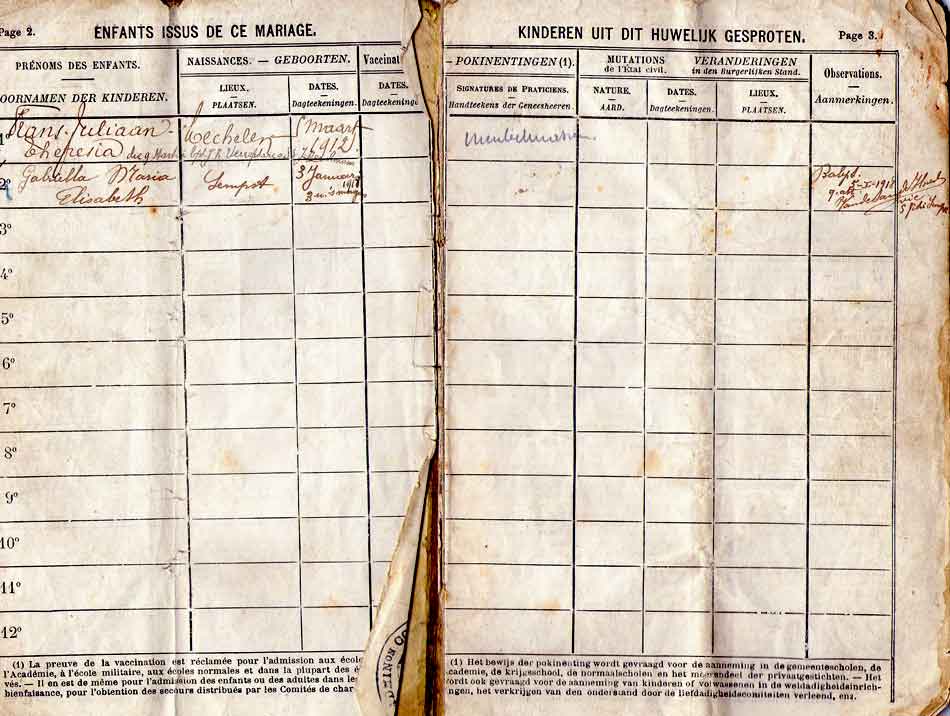 Page 2.
ENFANTS ISSUS DE CE MARIAGE.
PRÉNOMS DES ENFANTS.
OORNAMEN DER KINDEREN.
NAISSANCES. — GEBOORTEN.
LIEUX.
PLAATSEN.
DATES.
Dagteekeningen.
Vaccinat
DATES.
Dagteekeninge
1º
Frans Juliaan
Theresia
Mechelen
5 Maart
1912
2º
Gabriella Maria
Elisabeth
Lempst
3 Januari
1918
3º
4º
5º
6º
7º
8º
9º
10º
11º
12º
(1) La preuve de la vaccination est réclamée pour l'admission aux écol
l'Académie, à l'école militaire, aux écoles normales et dans la plupart des é
vés. — Il en est de même pour l'admission des enfants ou des adultes dans le
bienfaisance, pour l'obtention des secours distribués par les Comités de char
KINDEREN UIT DIT HUWELIJK GESPROTEN.
Page 3.
- POKINENTINGEN (1).
SIGNATURES DE PRATICIENS.
Handteekens der Geneesheeren.
MUTATIONS
de l'État civil.
VERANDERINGEN
in den Burgerlijken Stand.
NATURE.
AARD.
DATES.
Dagteekeningen.
LIEUX.
PLAATSEN.
Observations.
Aanmerkingen.
(1) Het bewijs der pokinenting wordt gevraagd voor de aanneming in de gemeentescholen, de
cademie, de krijgsschool, de normaalscholen en het meerendeel der privaatgestichten. — Het
ordt ook gevraagd voor de aanneming van kinderen of volwassenen in de weldadigheidsinrich-
ngen, het verkrijgen van den onderstand door de liefdadigheidscomiteiten verleend, enz.